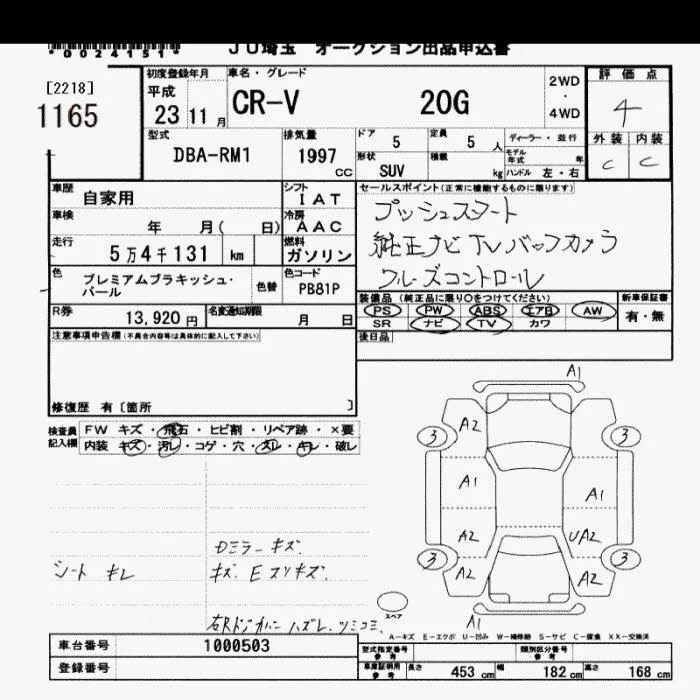 *0024151*
JU埼玉 オークション出品申込書
[2218]
1165
初度登録年月
平成
23 11 月
車名・グレード
CR-V 20G
2WD
・
4WD
評価点
4
外装 内装
C C
型式
DBA-RM1
排気量
1997 CC
ドア 5
定員 5 人
ディーラー・並行
形状 SUV
積載 kg
モデル年式 年
ハンドル 左・右
車歴 自家用
シフト IAT
車検 年 月( 日)
冷房 AAC
走行 5万4千131 km
燃料 ガソリン
色 プレミアムブラキッシュ・パール
色替
色コード PB81P
R券 13,920円
名変通知期限 月 日
セールスポイント(正常に機能するものに限ります)
プッシュスタート
純正ナビ TV バックカメラ
クルーズコントロール
装備品 (純正品に限り○をつけてください)
PS PW ABS エアB AW
SR ナビ TV カワ
新車保証書
有・無
後日品
注意事項申告欄(不具合内容等は具体的に記入して下さい)
修復歴 有〔箇所 〕
検査員記入欄
FW キズ・飛石・ヒビ割・リペア跡・×要
内装 キズ・汚レ・コゲ・穴・スレ・キレ・破レ
シート キレ
Dミラー キズ
キズ. E スリキズ.
ハズレ.
A1
A2
3 3
A1 A1
A2 UA2
3 3
A2 A2
スペア
A1
A-キズ E-エクボ U-凹み W-補修跡 S-サビ C-腐食 XX-交換済
車台番号 1000503
登録番号
型式指定番号 参考
類別区分番号 参考
車庫証明用 参考
長さ 453 cm 幅 182 cm 高さ 168 cm